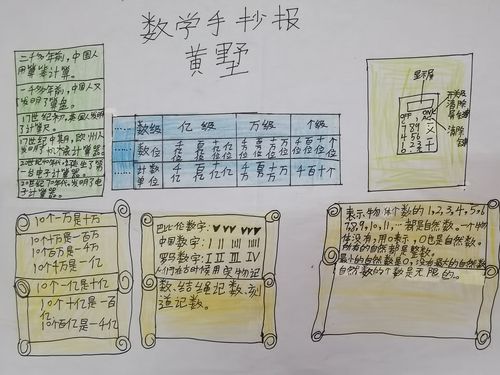 数学手抄报
黄墅
二千多年前，中国人
用算筹计算。
一千多年前，中国人又
发明了算盘。
17世纪初，英国人发明
了计算尺。
17世纪中期，欧洲人
发明了机械计算器
20世纪40年代，诞生了第
一台电子计算机。
20世纪70年代，发明了电
子计算器
…… 数级 亿级 万级 个级
…… 数位 千亿位 百亿位 十亿位 亿位 千万位 百万位 十万位 万位 千位 百位 十位 个位
…… 计数单位 千亿 百亿 十亿 亿 千万 百万 十万 万 千 百 十 个
显示屏
开关及
清除
屏键
清除
键
OFF
7 8 9
4 5 6
1 2 3
10个一万是十万
10个十万是一百万
10个百万是一千万
10个千万是一亿
10个一亿是十亿
10个十亿是一百
亿
10个百亿是一千亿
巴比伦数字：
中国数字：
罗马数字：I II III IV
人们在古时候用实物记
数、结绳记数、刻
道记数。
表示物体个数的1,2,3,4,5,6
7,8,9,10,11,…都是自然数。一个物
体没有，用0表示，0也是自然数。
所有的自然数都是整数。
最小的自然数是0，没有最大的自然数
自然数的个数是无限的。